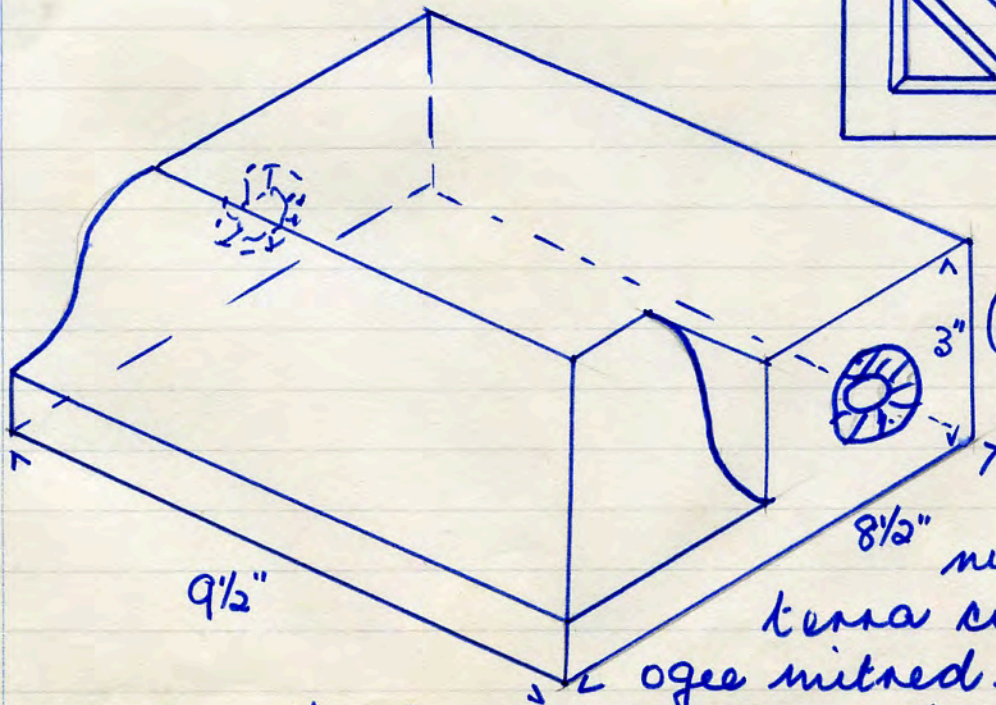 3"
8½"
9½"
terra
ogee mitred.